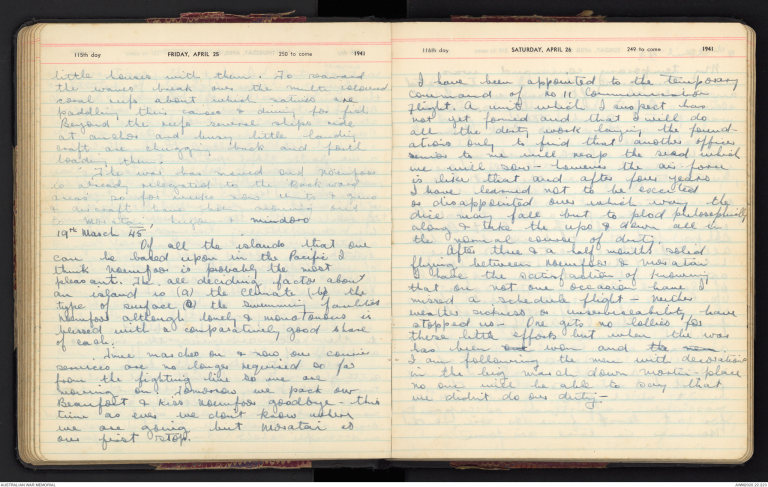 115th day FRIDAY, APRIL 25 250 to come 1941
little houses with them. To seaward
the waves break over the multi coloured
coral reefs about which natives are
paddling their canoes & diving for fish
Beyond the reefs several ships ride
at anchor and busy little landing
craft are chugging back and forth
loading them.
The war has moved and Noemfoor
is already relegated to the backward
areas so for weeks now units & guns
& aircraft have been moving out
to Morotai, & Mindoro
19th March 45
Of all the islands that one
can be based upon in the Pacific I
think Noemfoor is probably the most
pleasant. The all deciding factor about
an island is (a) the climate (b) the
type of surface (c) the swimming facilities
Noemfoor although lonely & monotonous is
blessed with a comparatively good share
of each.
Time marches on & now our courier
services are no longer required so far
from the fighting line so we are
moving on. Tomorrow we pack our
Beaufort & kiss Noemfoor goodbye - this
time as ever we don't know where
we are going but Morotai is
our first stop.
116th day SATURDAY, APRIL 26 249 to come 1941
I have been appointed to the temporary
command of No 11 Communication
flight. A unit which I suspect has
not yet formed and that I will do
all the dirty work laying the found-
ations only to find that another officer
senior to me will reap the seed which
we will sow - however the air force
is like that and after four years
I have learned not to be excited
or disappointed over which way the
dice may fall but to plod philosophically
along & take the ups & downs all in
the normal course of duty.
After three & a half months solid
flying between Noemfoor & Morotai
I have the satisfaction of knowing
that on not one occasion have I
missed a schedule flight - neither
weather sickness or unserviceability have
stopped us - One gets no lollies for
these little efforts but when the war
has been won and
I am following the men with decorations
in the big march down Martin-place
no one will be able to say that
we didn't do our duty -
AUSTRALIAN WAR MEMORIAL